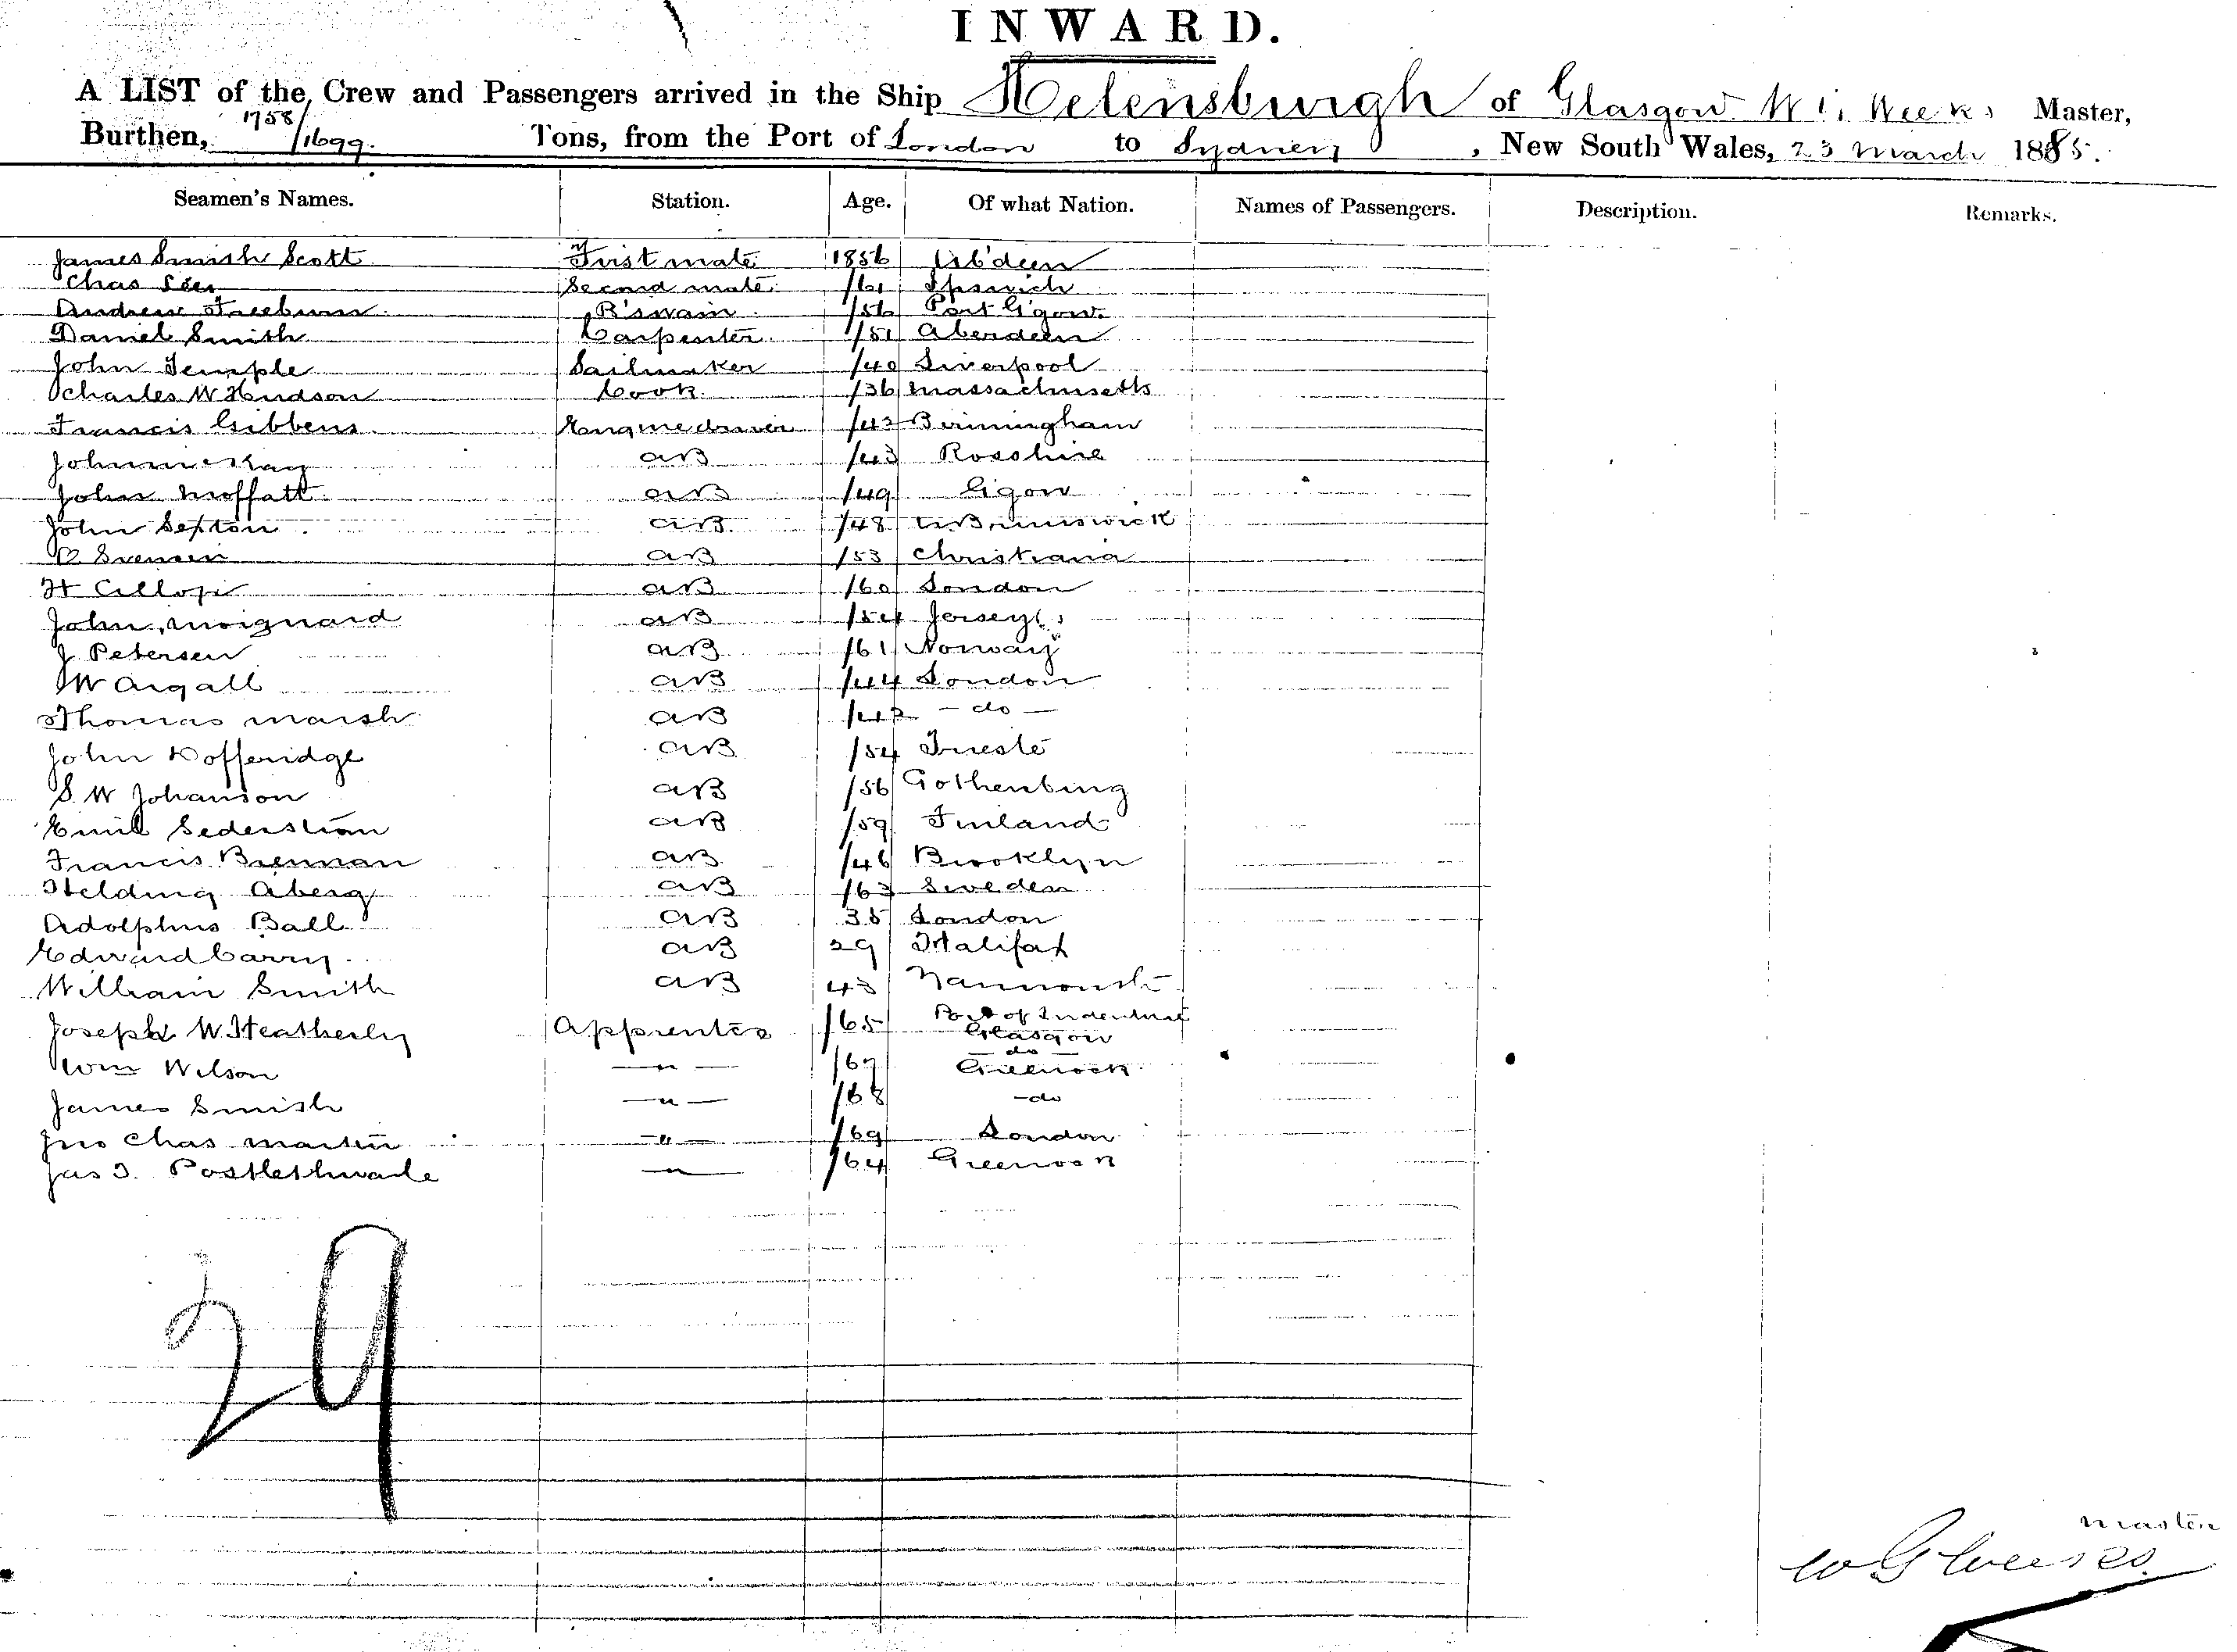 INWARD.
A LIST of the Crew and Passengers arrived in the Ship Helensburgh of Glasgow W. G. Weeks Master,
Burthen, 1758/1699. Tons, from the Port of London to Sydney, New South Wales, 23 March 1885.
Seamen's Names. Station. Age. Of what Nation. Names of Passengers. Description. Remarks.
James Smith Scott First mate 1856 Ab'deen
Chas Second mate /61 Ipswich
Andrew B'swain /56 Port G'gow
Daniel Smith Carpenter /51 Aberdeen
John Temple Sailmaker /40 Liverpool
Charles W Hudson Cook /36 Massachusetts
Francis Gibbens Enginedriver /43 Birmingham
John McKay AB /43 Rosshire
John Moffatt AB /49 G'gow
John Sefton AB /48 Brunswick
Svensen AB /53 Christiana
H AB /60 London
John Moignard AB /54 Jersey
J Petersen AB /61 Norway
W Argall AB /44 London
Thomas Marsh AB - do -
John Dofferidge AB /54 Trieste
S. W Johanson AB /56 Gothenburg
Emil Sederstrom AB /59 Finland
Francis Brennan AB /46 Brooklyn
Helding Aberg AB /63 Sweden
Adolphus Ball AB 35 London
Edward Carry AB 29 Halifax
William Smith AB 43 Yarmouth
Joseph W. Heatherly Apprentice /65 Port of Indenture Glasgow
Wm Wilson — " — /67 - do - Greenock
James Smith — " — /68 - do
Jno Chas Martin — " — /69 London
Jas J. Postlethwaite — " — /64 Greenock
29
Master
W G Weekes